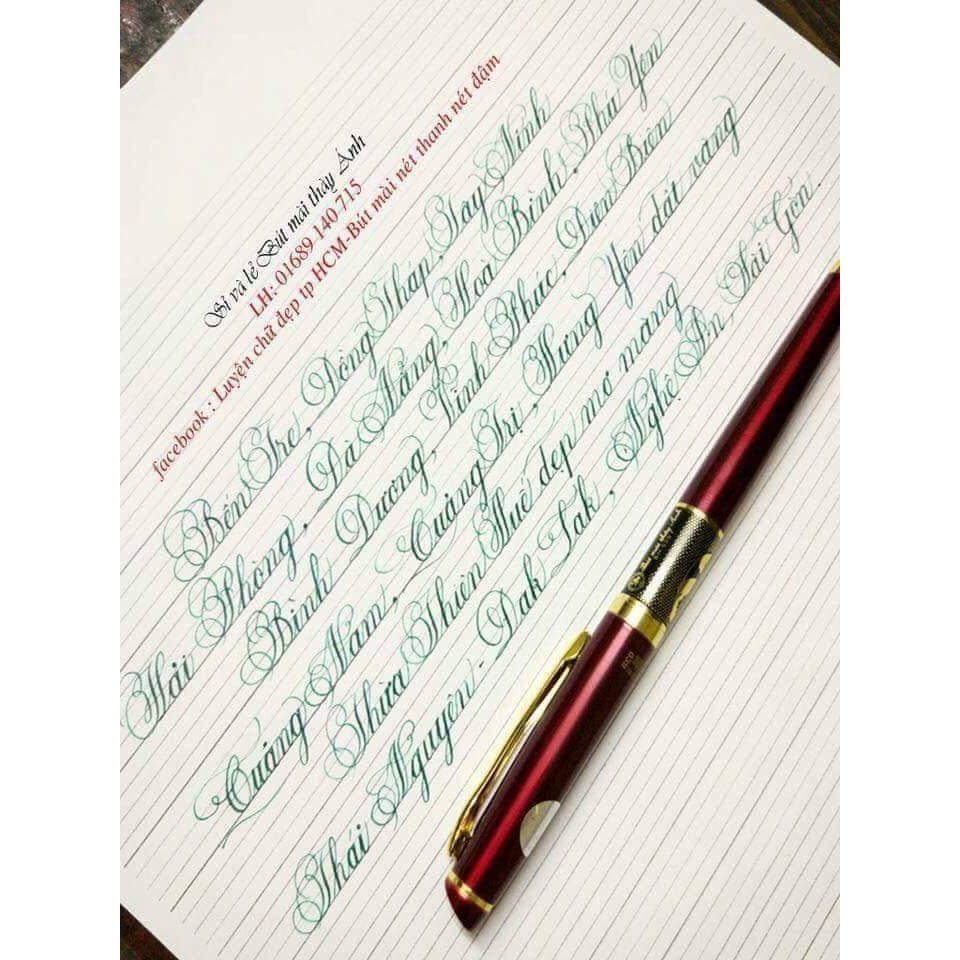 Sỉ và lẻ Bút mài thầy Ánh
LH:-01689 140 715
facebook : Luyện chữ đẹp tp HCM-Bút mài nét thanh nét đậm
Bến Tre, Đồng Tháp, Tây Ninh
Hải Phòng, Đà Nẵng, Hoà Bình, Phú Yên
Bình Dương, Vĩnh Phúc, Điện Biên
Quảng Nam, Quảng Trị, Hưng Yên đất vàng
Thừa Thiên Huế đẹp mơ màng
Thái Nguyên - Đak Lak, Nghệ An, Sài Gòn.